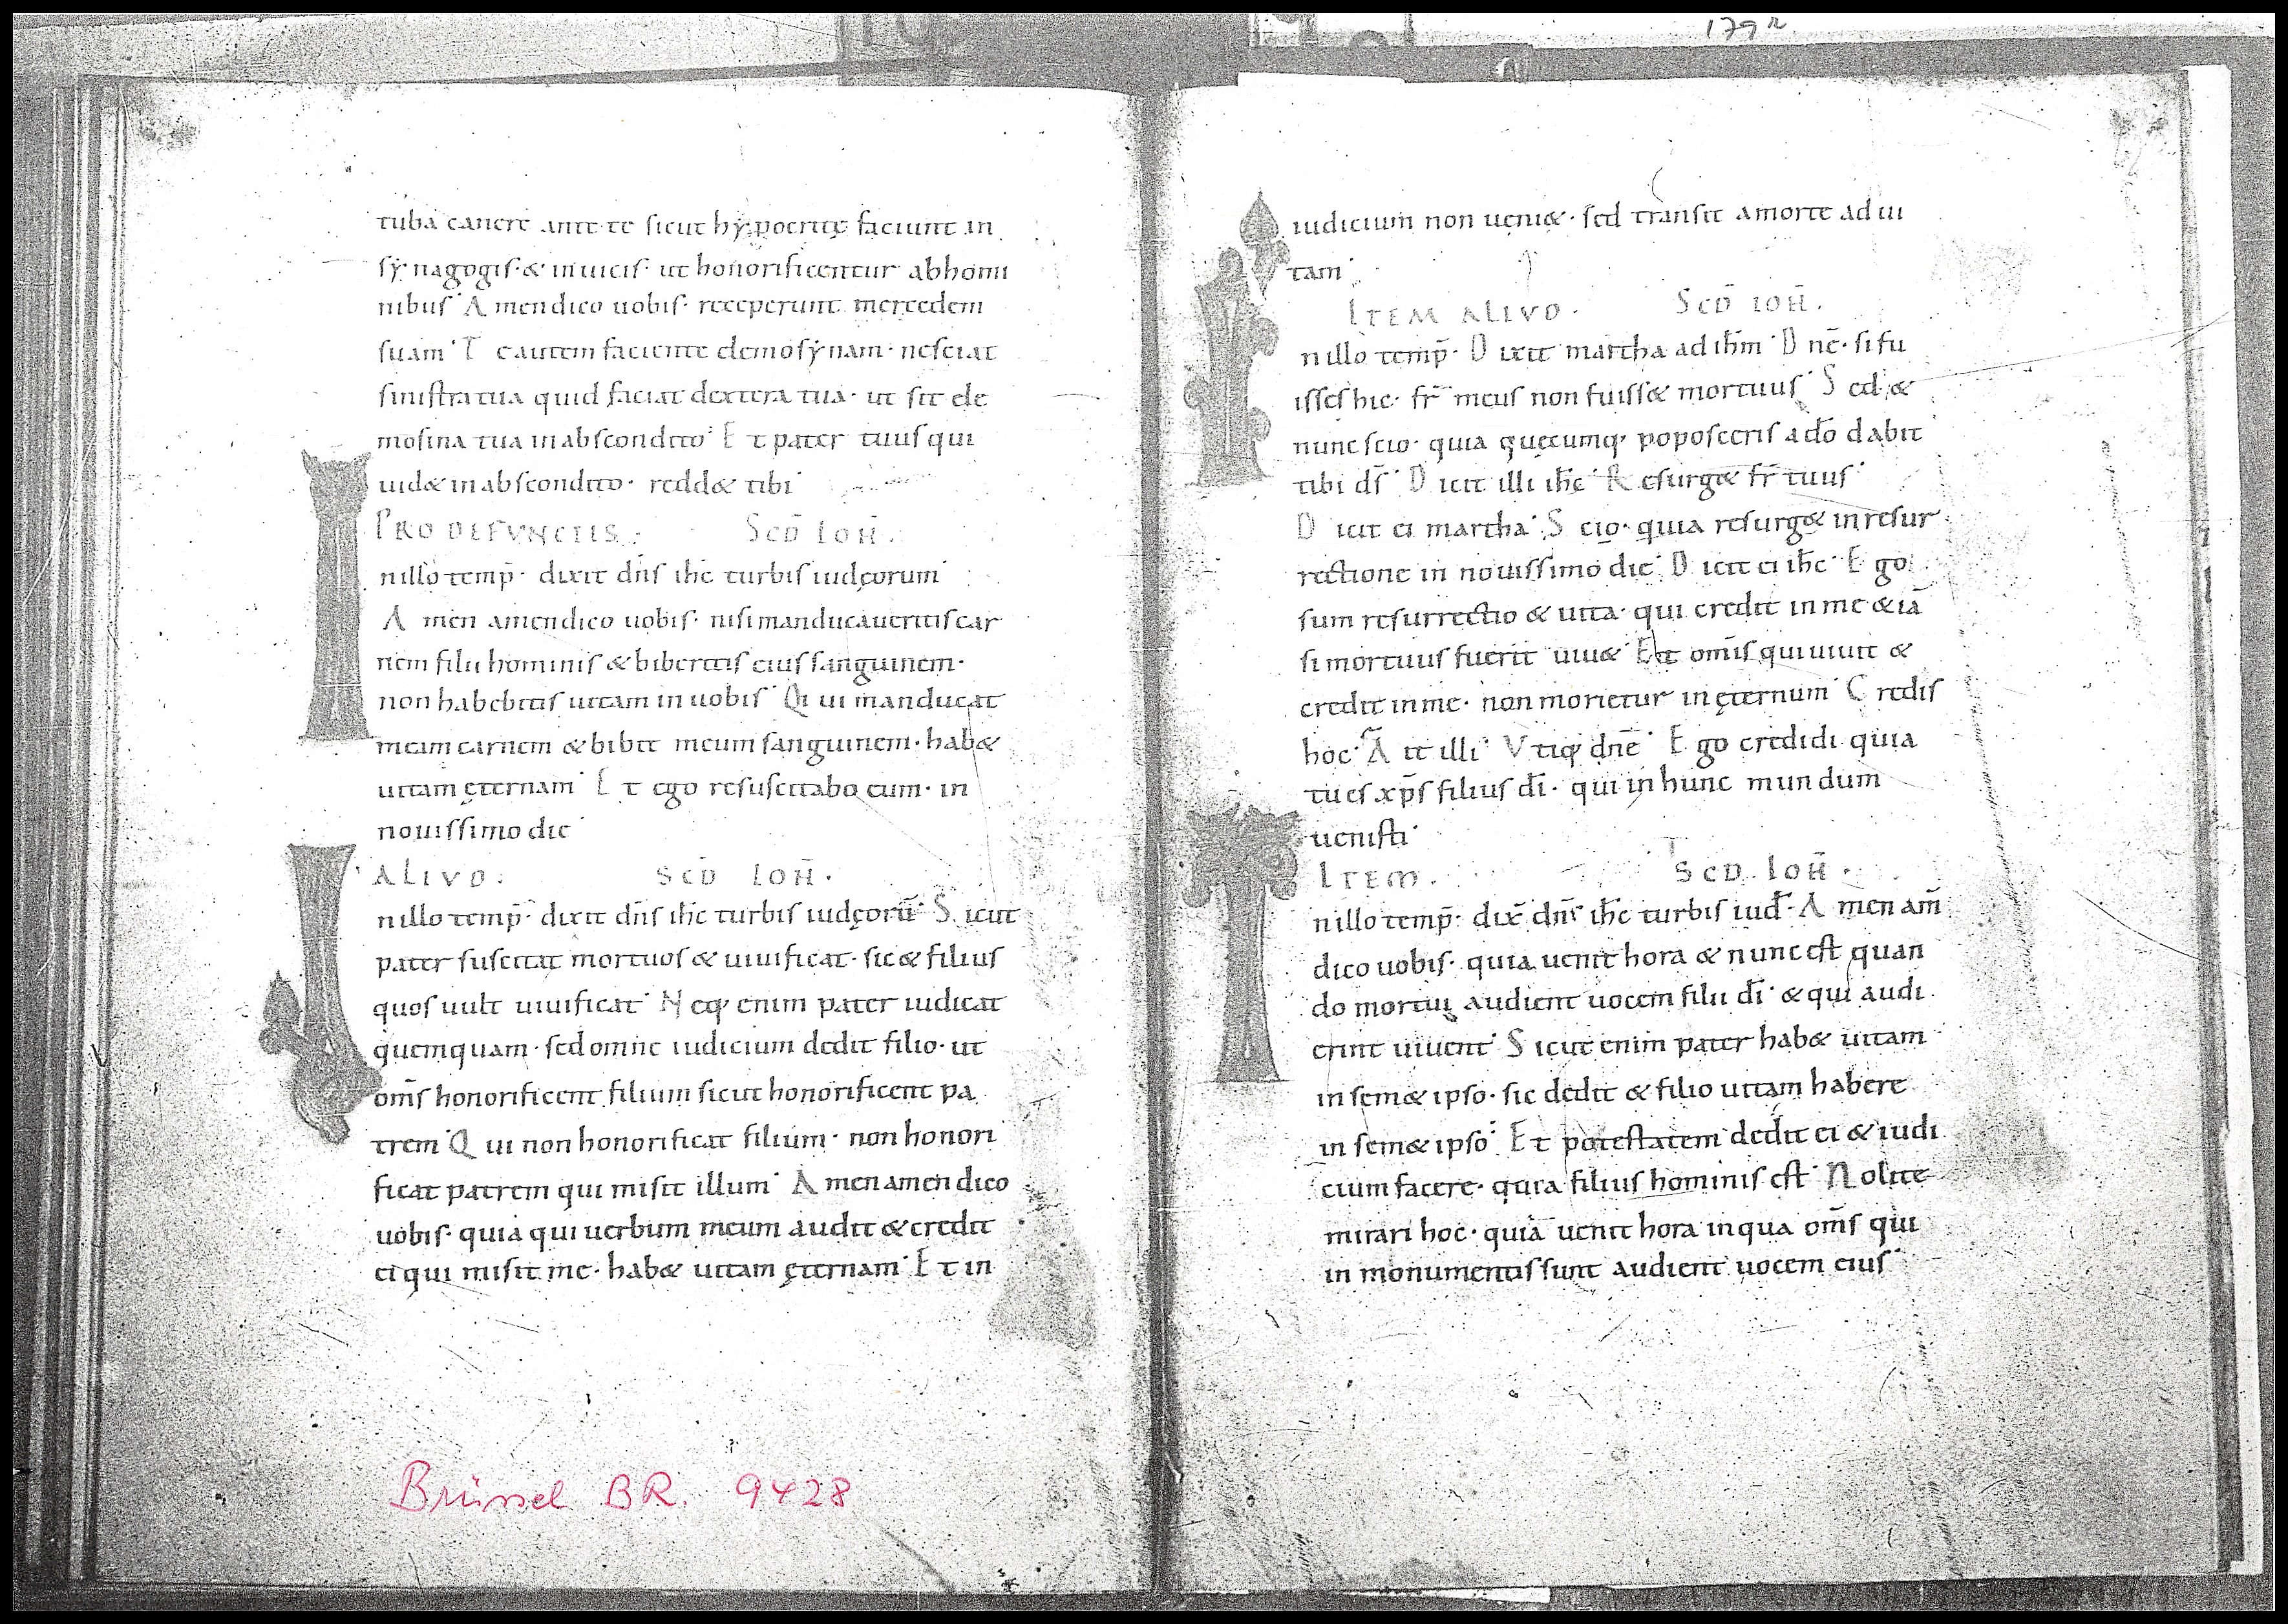 179r
tuba canere ante te sicut hypocritę faciunt in
synagogis· & in uicis· ut honorificentur ab homi
nibus· Amen dico uobis· receperunt mercedem
suam· Te autem faciente elemosynam· nesciat
sinistra tua quid faciat dextera tua· ut sit ele
mosina tua in abscondito· Et pater tuus qui
uid& in abscondito· redd& tibi
PRO DEFUNCTIS. SCD IOH̄.
In illo temp̄· dixit dn̄s ih̄c turbis iudęorum·
Amen amen dico uobis· nisi manducaueritis car
nem filii hominis & biberitis eius sanguinem·
non habebitis uitam in uobis· Qui manducat
meam carnem & bibit meum sanguinem· hab&
uitam ęternam· Et ego resuscitabo eum· in
nouissimo die·
ALIUD. SCD̄ IOH̄.
In illo temp̄· dixit dn̄s ih̄c turbis iudęorū· Sicut
pater suscitat mortuos & uiuificat· sic & filius
quos uult uiuificat· Neq; enim pater iudicat
quemquam· sed omne iudicium dedit filio· ut
om̄s honorificent filium sicut honorificent pa
trem· Qui non honorificat filium· non honori
ficat patrem qui misit illum· Amen amen dico
uobis· quia qui uerbum meum audit & credit
ei qui misit me· hab& uitam ęternam· Et in
Brüssel BR. 9428
iudicium non ueni&· sed transit a morte ad ui
tam·
ITEM ALIUD. SCD̄ IOH̄.
In illo temp̄· Dixit martha ad ih̄m· Dn̄e· si fu
isses hic· fr̄ meus non fuiss& mortuus· Sed &
nunc scio· quia quęcumq; poposceris a do̅ dabit
tibi ds̄· Dicit illi ih̄c· Resurg& fr̄ tuus·
Dicit ei martha· Scio· quia resurg& in resur
rectione in nouissimo die· Dicit ei ih̄c· Ego
sum resurrectio & uita· qui credit in me &iā
si mortuus fuerit uiu&· Et om̄is qui uiuit &
credit in me· non morietur in ęternum· Credis
hoc· Ait illi· Utiq; dn̄e· Ego credidi quia
tu es xp̄s filius dī· qui in hunc mundum
uenisti·
ITEM. SCD IOH̄.
In illo temp̄· dix̄ dn̄s ih̄c turbis iud̄· Amen am̄
dico uobis· quia uenit hora & nunc est quan
do mortui audient uocem filii dī· & qui audi
erint uiuent· Sicut enim pater hab& uitam
in sem&ipso· sic dedit & filio uitam habere
in sem&ipso· Et potestatem dedit ei & iudi
cium facere· quia filius hominis est· Nolite
mirari hoc· quia uenit hora in qua om̄s qui
in monumentis sunt audient uocem eius·